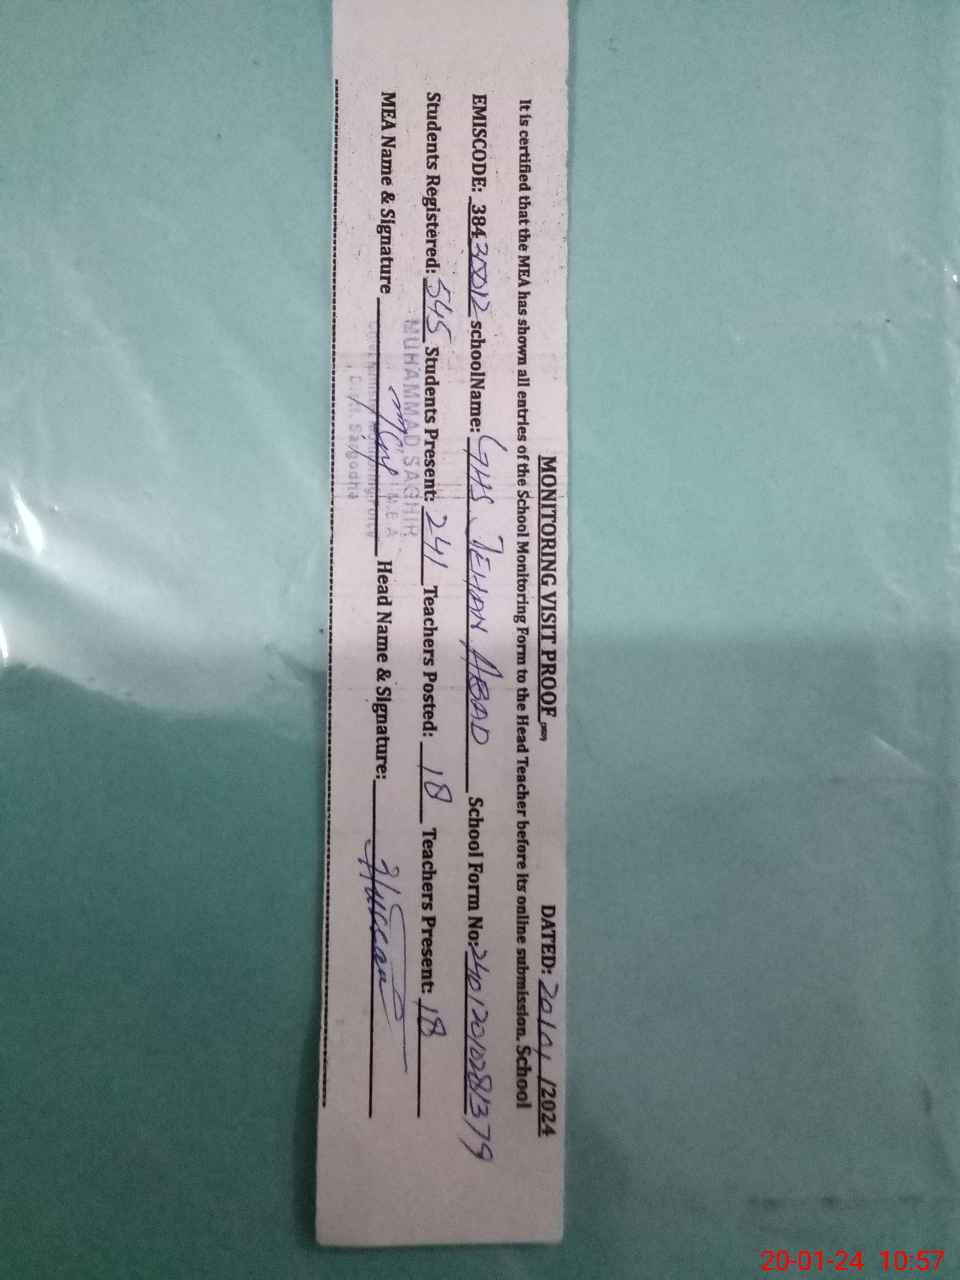 MONITORING VISIT PROOF DATED: 20/01/2024
It is certified that the MEA has shown all entries of the School Monitoring Form to the Head Teacher before its online submission. School
EMISCODE: 38430012 schoolName: GHS JEHAN ABAD School Form No: 240120102281379
Students Registered: 545 Students Present: 241 Teachers Posted: 18 Teachers Present: 18
MEA Name & Signature Head Name & Signature:
MUHAMMAD SAGHIR
M.E.A
Sargodha
20-01-24 10:57